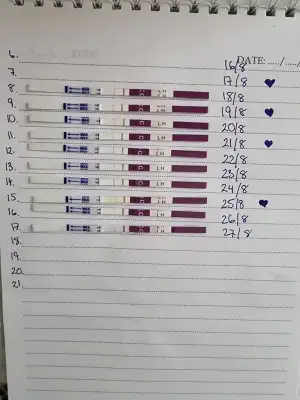 6. 16/8 DATE: ..../..../
7. 17/8 ♥
8. LH 18/8
9. LH 19/8 ♥
10. LH 20/8
11. LH 21/8 ♥
12. LH 22/8
13. LH 23/8
14. LH 24/8
15. LH 25/8 ♥
16. LH 26/8
17. LH 27/8
18.
19.
20.
21.